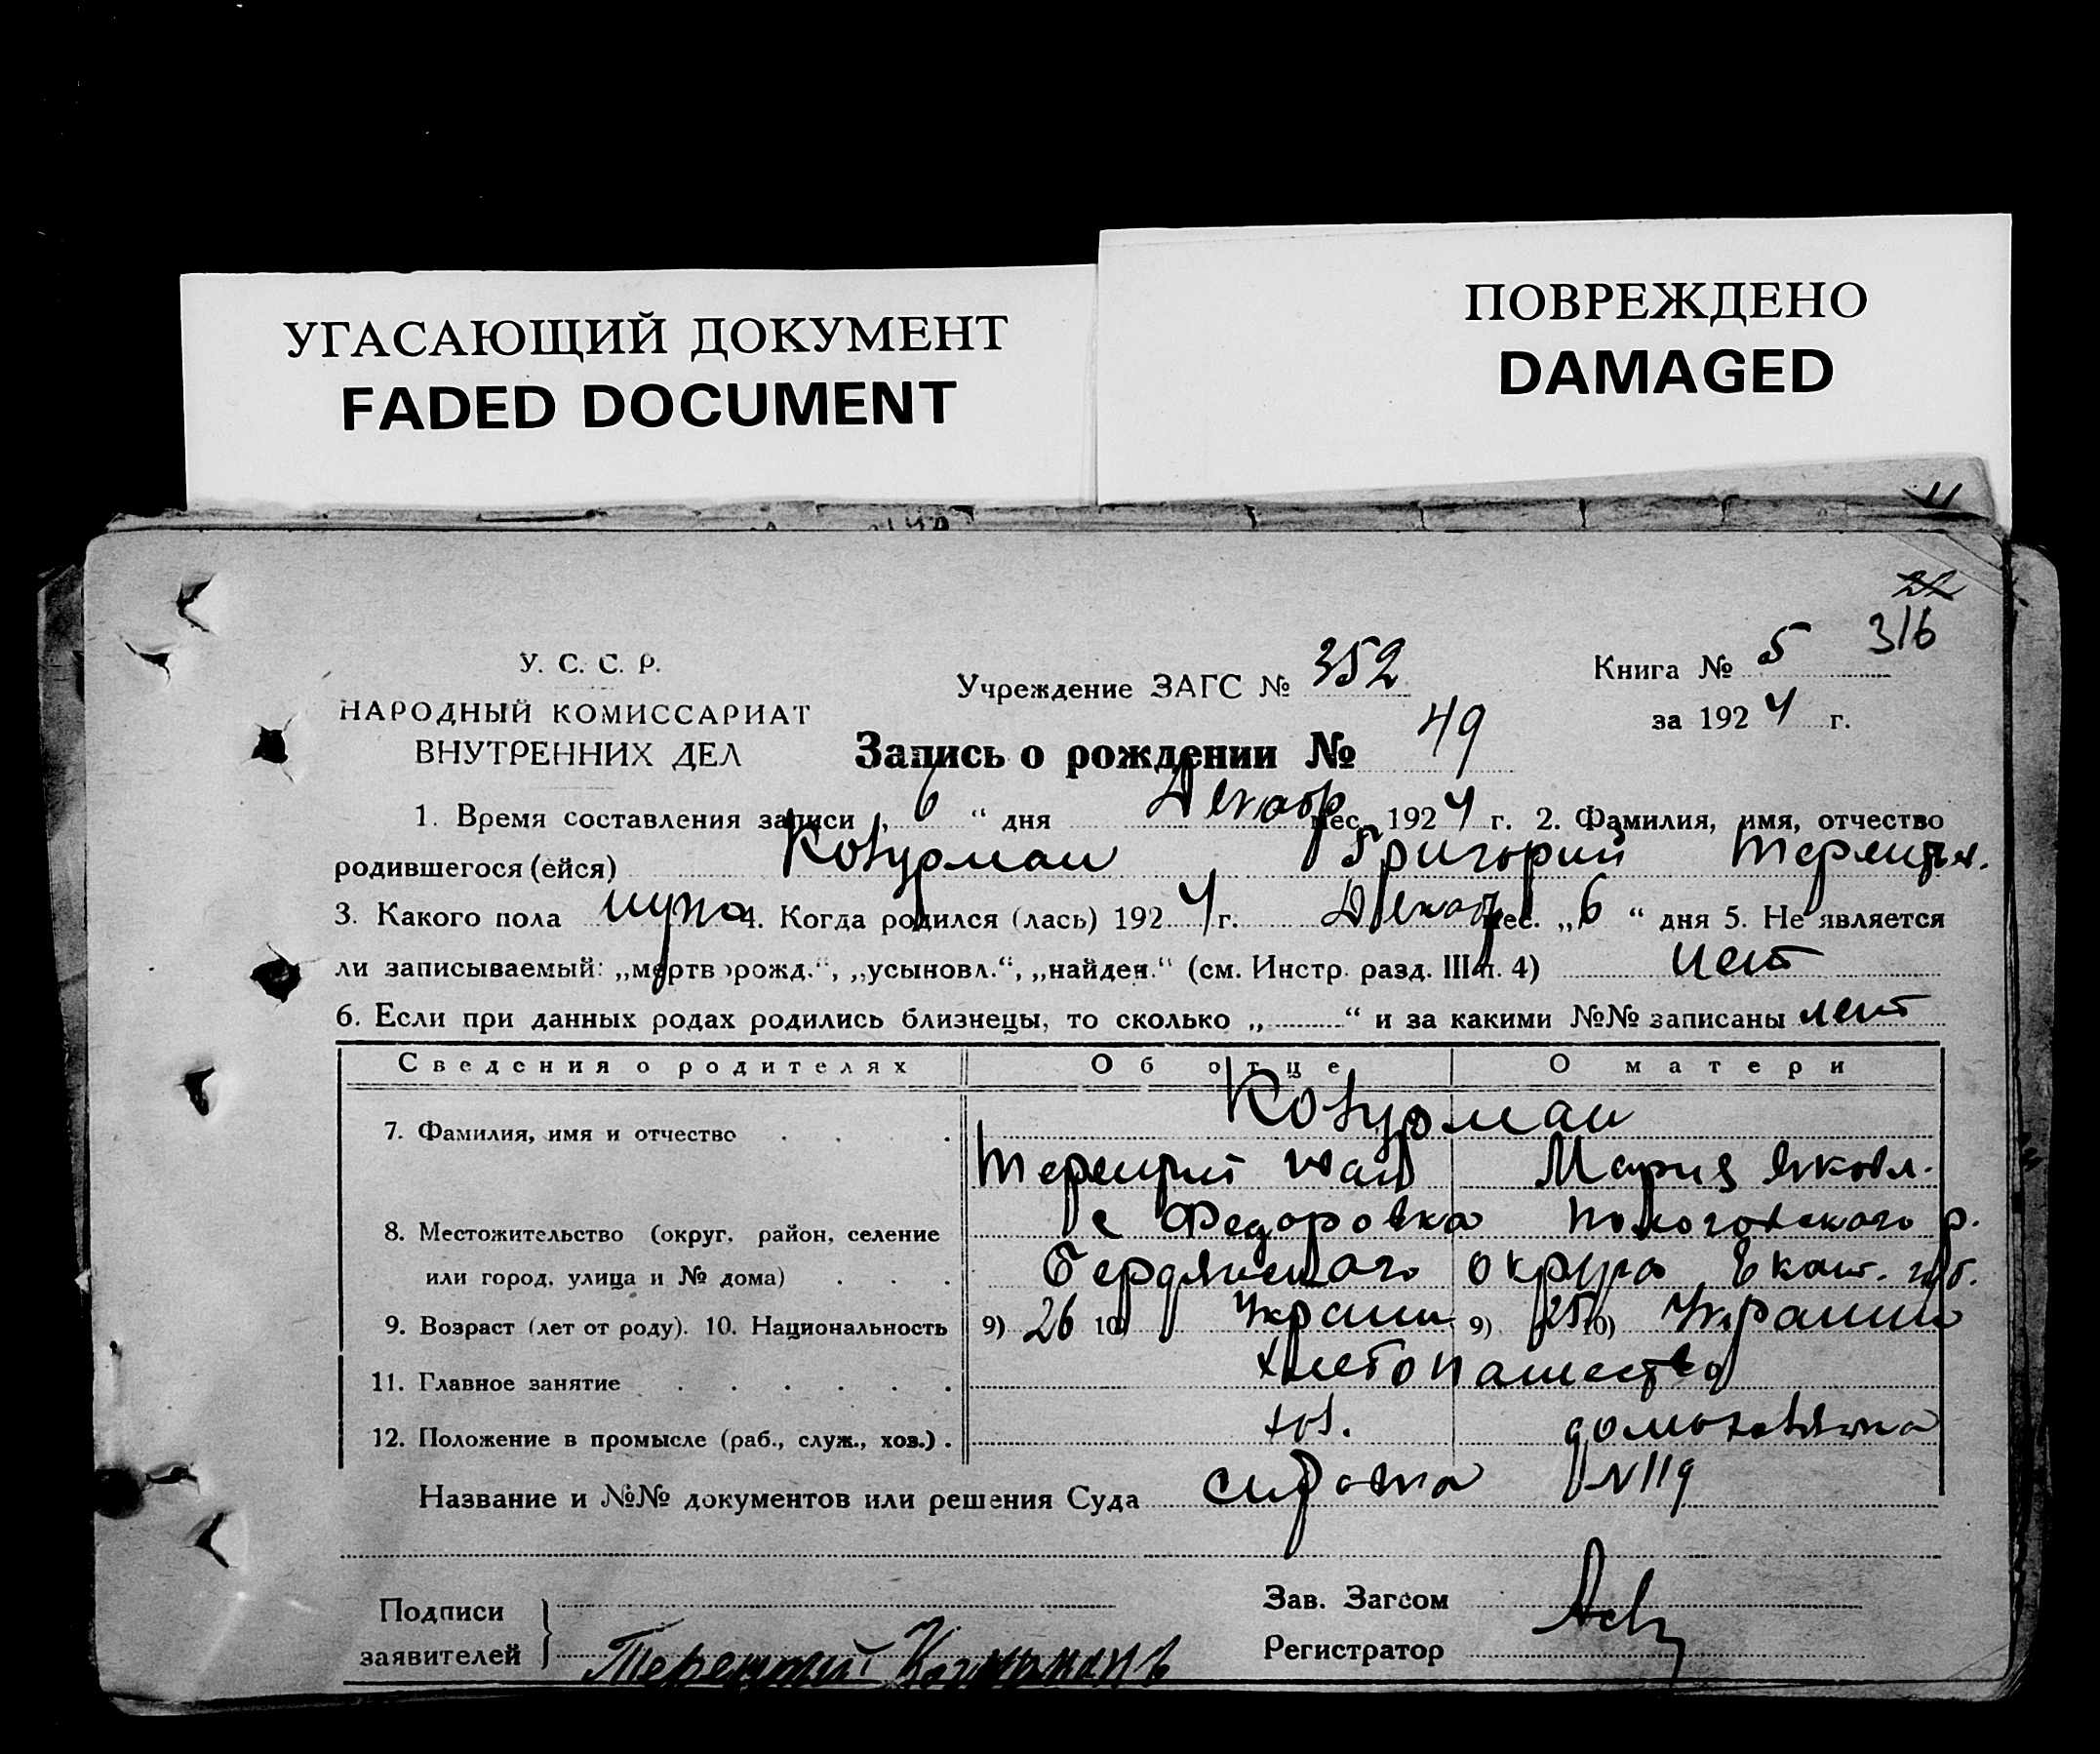 УГАСАЮЩИЙ ДОКУМЕНТ
FADED DOCUMENT
ПОВРЕЖДЕНО
DAMAGED
22
316
У. С. С. Р.
НАРОДНЫЙ КОМИССАРИАТ
ВНУТРЕННИХ ДЕЛ
Учреждение ЗАГС № 352
Книга № 5
за 1924 г.
Запись о рождении № 49
1. Время составления записи „6“ дня Декабр мес. 1924 г. 2. Фамилия, имя, отчество
родившегося (ейся) Григорий
3. Какого пола муж 4. Когда родился (лась) 1924 г. Декабр мес. „6“ дня 5. Не является
ли записываемый: „мертворожд.“, „усыновл.“, „найден.“ (см. Инстр. разд. III п. 4) нет
6. Если при данных родах родились близнецы, то сколько „ “ и за какими №№ записаны нет
Сведения о родителях Об отце О матери
7. Фамилия, имя и отчество
Терентий Мария Яковл.
8. Местожительство (округ, район, селение с Федоровка Пологовского р.
или город, улица и № дома) Бердянского округа Екат. губ.
9. Возраст (лет от роду). 10. Национальность 9) 26 10) Украин 9) 25 10) Украин
11. Главное занятие хлебопашество
12. Положение в промысле (раб., служ., хоз.) хоз. домохозяйка
Название и №№ документов или решения Суда справка N 119
Подписи
заявителей
Терентий
Зав. Загсом
Регистратор